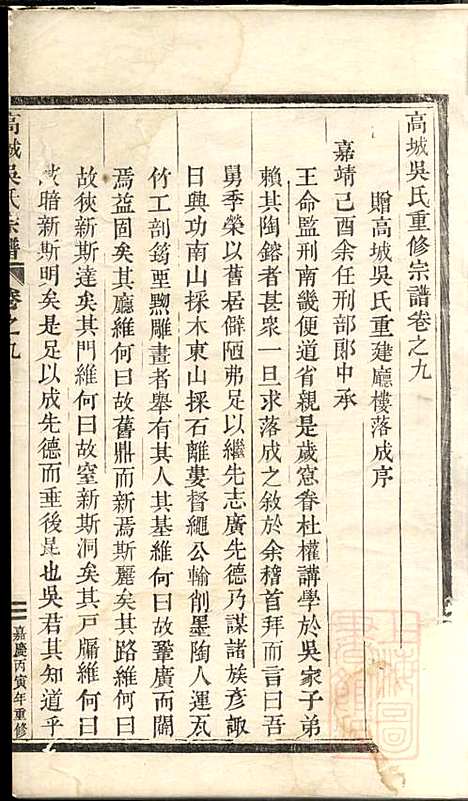 高城吳氏重修宗譜卷之九
贈高城吳氏重建廳樓落成序
嘉靖己酉余任刑部郎中承
王命監刑南畿便道省親是歲窓眷杜權講學於吳家子弟
賴其陶鎔者甚衆一旦求落成之敘於余稽首拜而言曰吾
舅季榮以舊居僻陋弗足以繼先志廣先德乃謀諸族彥諏
日興功南山採木東山採石離婁督繩公輸削墨陶人運瓦
竹工剖筠堊黝雕畫者舉有其人其基維何曰故鞏廣而闢
焉益固矣其廳維何曰故舊鼎而新焉斯麗矣其路維何曰
故狹新斯達矣其門維何曰故窒新斯洞矣其戶牖維何曰
故暗新斯明矣是足以成先德而垂後昆也吳君其知道乎
高城吳氏宗譜
卷之九
嘉慶丙寅年重修
上海圖書館藏